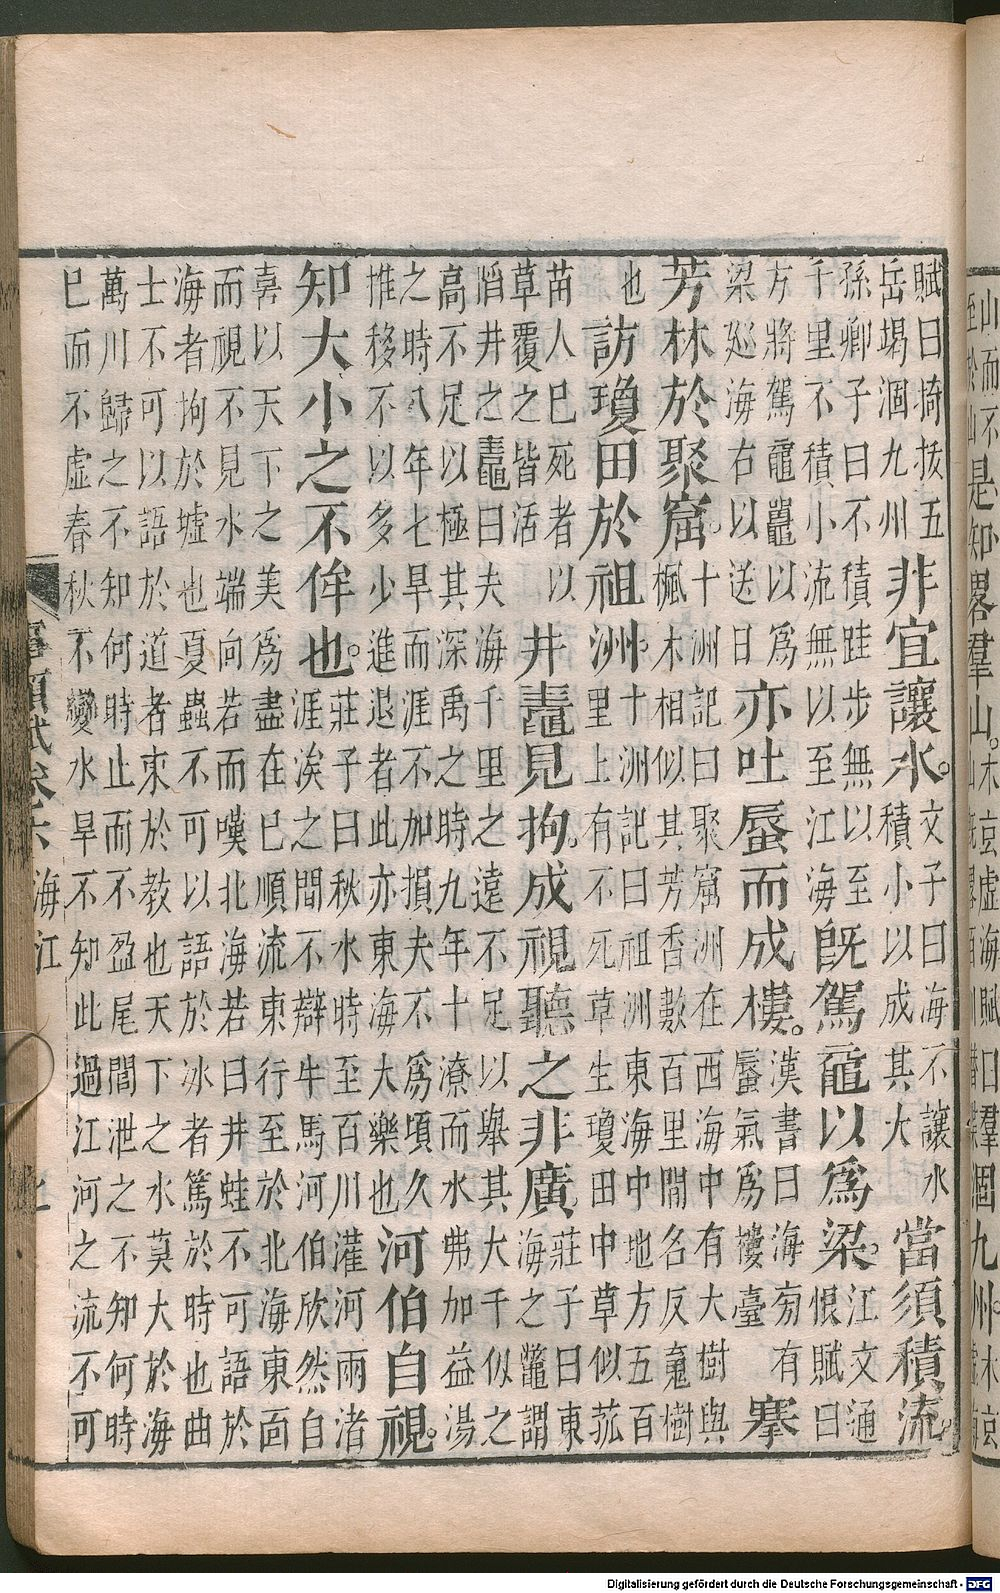 山而不
至於山是知畧羣山。木玄虛海賦曰羣
涸九州木玄
賦曰掎拔五
岳堨涸九州非宜讓水。文子曰海不讓水
積小以成其大當須積流。
孫卿子曰不積跬步無以至
千里不積小流無以至江海旣駕黿以爲梁。江文通
恨賦曰
方將駕黿鼉以爲
梁廵海右以送日亦吐蜃而成樓。漢書曰海旁有
蜃氣爲樓臺搴
芳林於聚窟。十洲記曰聚窟洲在西海中有大樹與
楓木相似其芳香數百里間名反䰟樹
也訪瓊田於祖洲。十洲記曰祖洲東海中地方五百
里上有不死草生瓊田中草似菰
苗人巳死者以
草覆之皆活井鼃見拘。成視聽之非廣莊子曰東
海之鼈謂
蹈井之鼃曰夫海千里之遠不足以舉其大千似之
高不足以極其深禹之時九年十潦而水弗加益湯
之時八年七旱而涯不加損夫不爲頃久
推移不以多少進退者此亦東海大樂也河伯自視。
知大小之不侔也。莊子曰秋水時至百川灌河雨渚
涯涘之間不辯牛馬河伯欣然自
喜以天下之美爲盡在巳順流東行至於北海東面
而視不見水端向若而嘆北海若曰井蛙不可語於
海者拘於墟也夏蟲不可以語於冰者篤於時也曲
士不可以語於道者束於教也天下之水莫大於海
萬川歸之不知何時止而不盈尾閭泄之不知何時
巳而不虛春秋不變水旱不知此過江河之流不可
事類賦卷六 海江
Digitalisierung gefördert durch die Deutsche Forschungsgemeinschaft - DFG